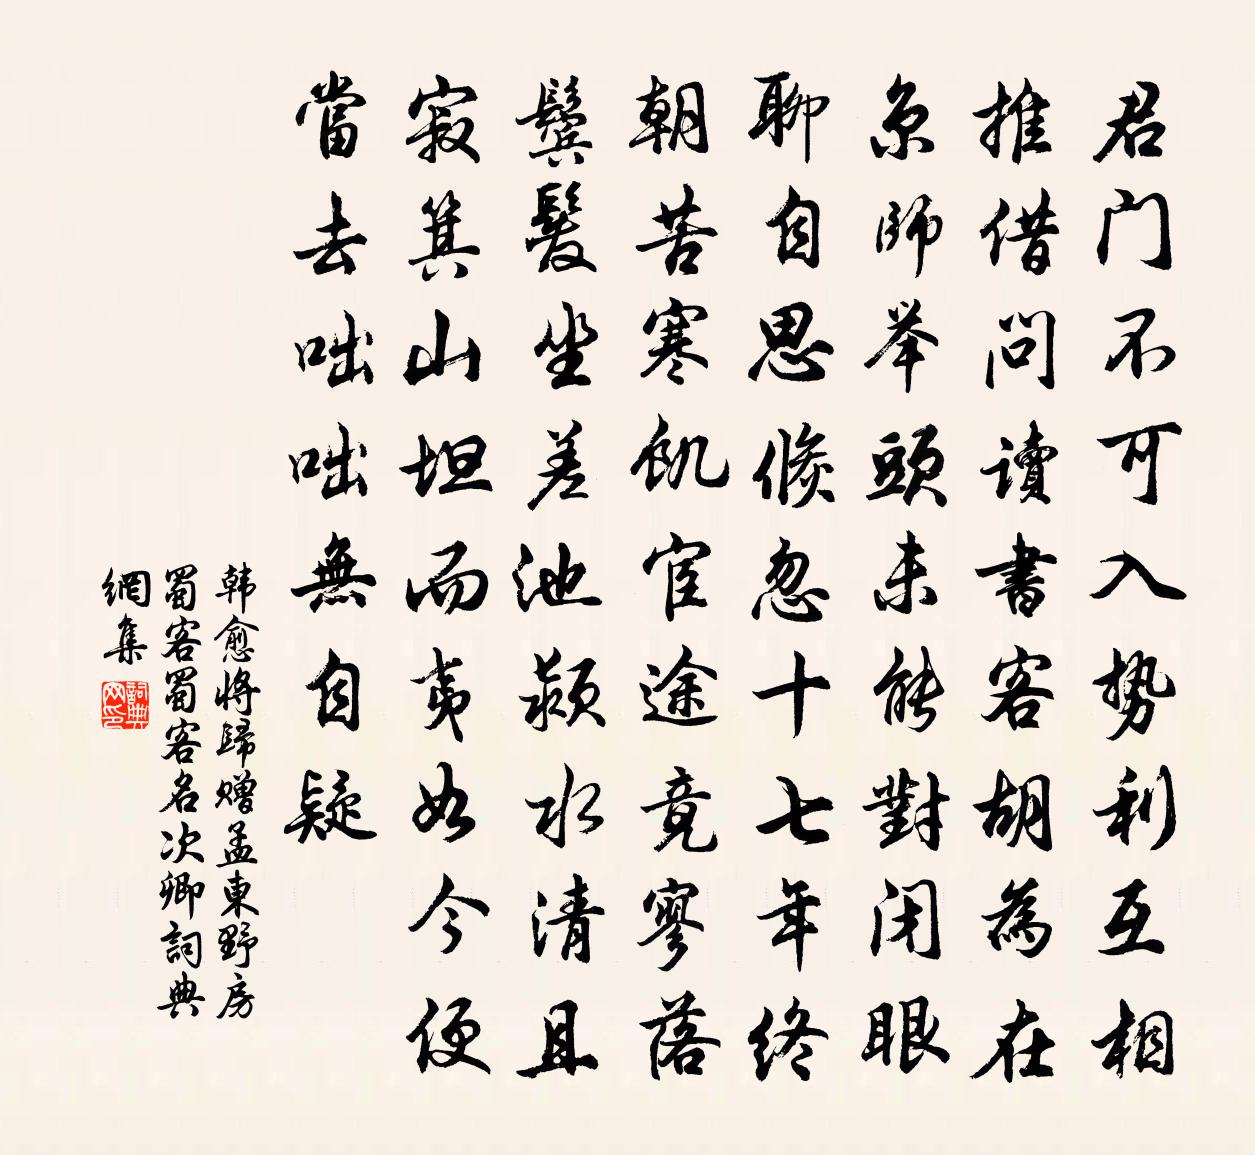 君门不可入势利互相
推借问讀書客胡為在
京師举頭未能對闭眼
聊自思倐忽十七年终
朝苦寒飢宦途竟寥落
鬓髮坐差池颍水清且
寂箕山坦而夷如今便
當去咄咄無自疑
韩愈将歸赠孟東野房
蜀客蜀客名次卿詞典
網集
詞典
网印